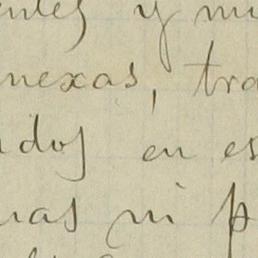 entes y mi
nexas, tra
ados en es
uas ni p